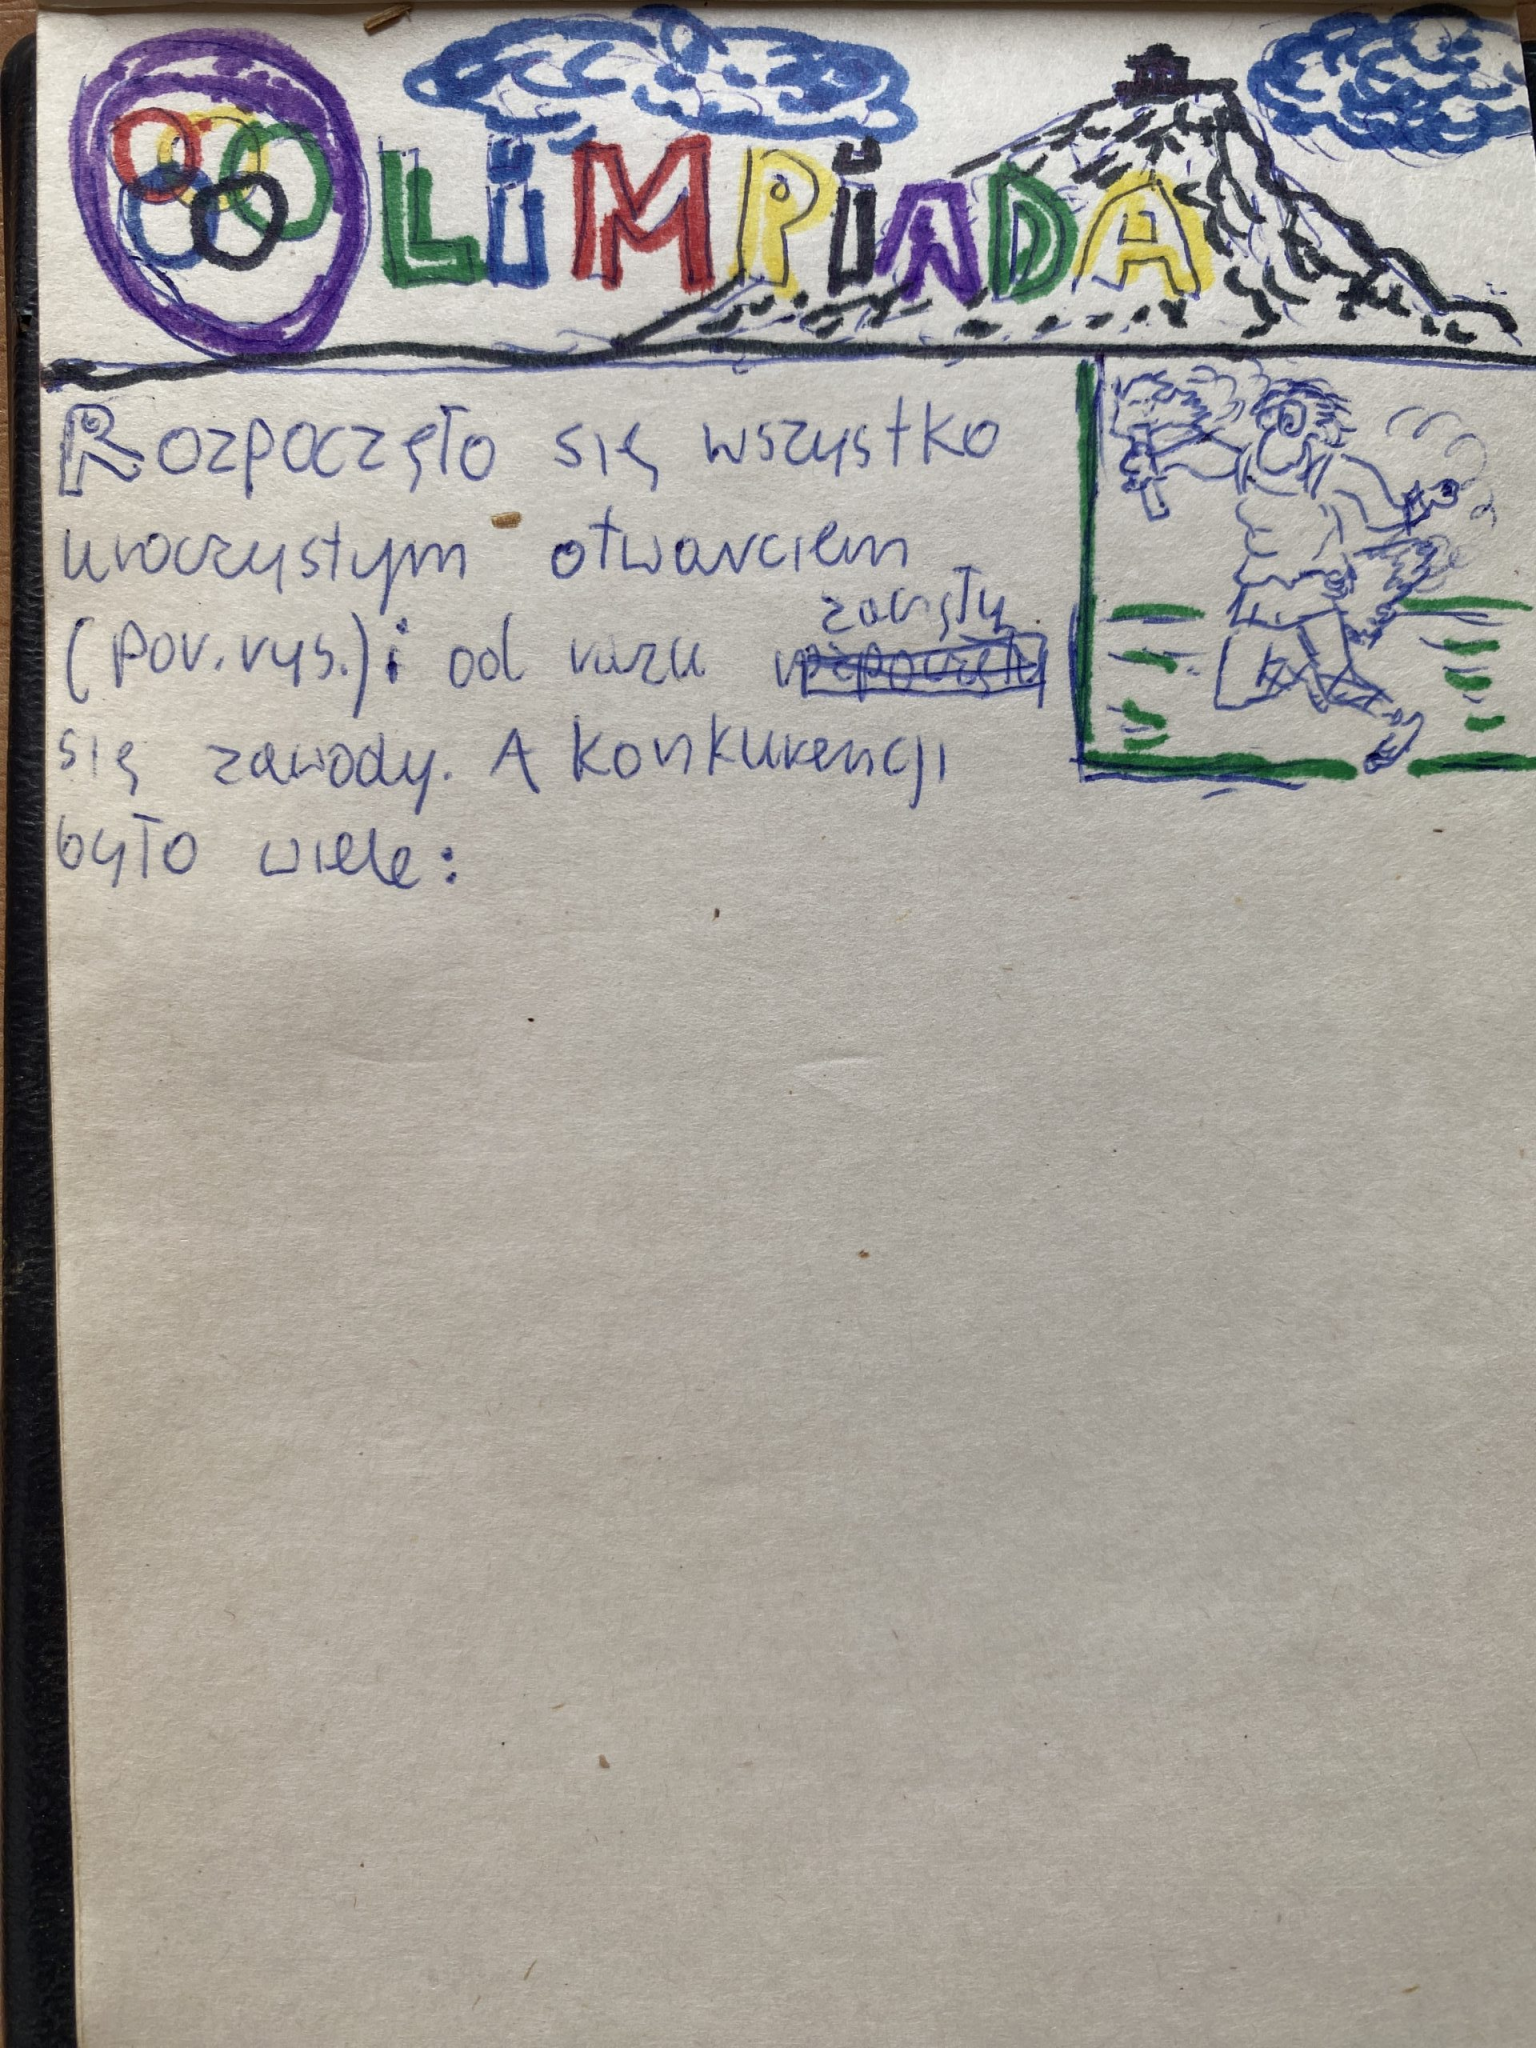 OLiMPiADA
Rozpoczęło się wszystko
uroczystym otwarciem
(por. rys.) i od razu zaczęły
się zawody. A konkurencji
było wiele: